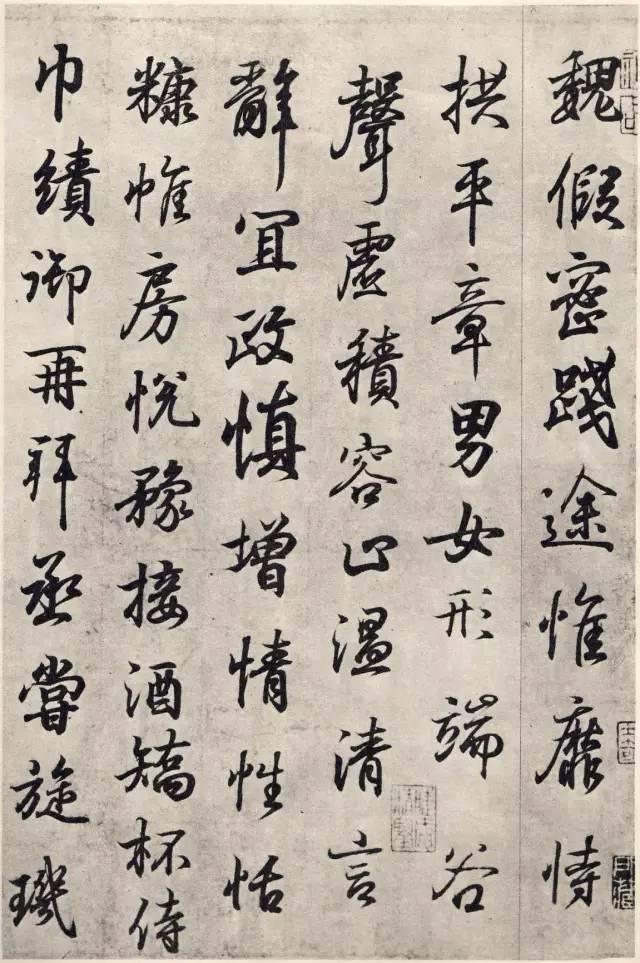 魏假密踐途惟靡恃
拱平章男女形端谷
聲虛積容止溫清言
辭宜政慎增情性恬
糠帷房悅豫接酒矯杯侍
巾績御再拜烝嘗旋璣